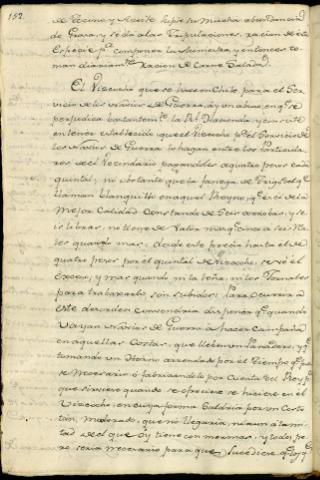 152.
de Tocino, y Aceite hubiese mucha abundancia
de Grasa, y se da a las Tripulaciones racion de esta
Especie pa. componer la Menestra, y entonces to-
man diariamte. Racion de Carne Salada.
El Viscocho que se hace en Chile para el Ser-
vicio de los Navios de Guerra, ay un abuso en q. se
perjudica bastantemte. la Rl. Hacienda, y es un sis-
tema establecido, que el Viscocho pa. el Servicio de
los Navios de Guerra lo hagan entre los Particula-
res del Vecindario pagandoles a quatro pesos cada
quintal, no obstante que la fanega de Trigo del q.
llaman blanquillo en aquel Reyno, q. es el de la
Mejor Calidad constando de seis arrobas, y se-
is libras, no llegue de valor mas q. once a seis Rea-
les quando mas; desde este precio hasta el de
quatro pesos por el quintal de Viscocho, se vé el
exceso, y mas quando ni la leña, ni los Jornales
para trabajarlo son subidos; Para ocurrir a
este desorden convendria disponer q. quando
vayan Navios de Guerra a hacer Campaña
en aquellas Costas, que lleven un Panadero, y q.
tomando un Horno arrendado por el Tiempo q.
se Necesario, ó fabricandolo por Cuenta del Rey pa.
que sirviere quando se ofreciese se hiciese en el
Viscocho, en cuya forma saldria por un Costo
tan moderado, que no llegaria, ni aun a la mi-
tad del que oy tiene con mermas, y todo; pe-
ro, seria necesario para que sucediese q. los